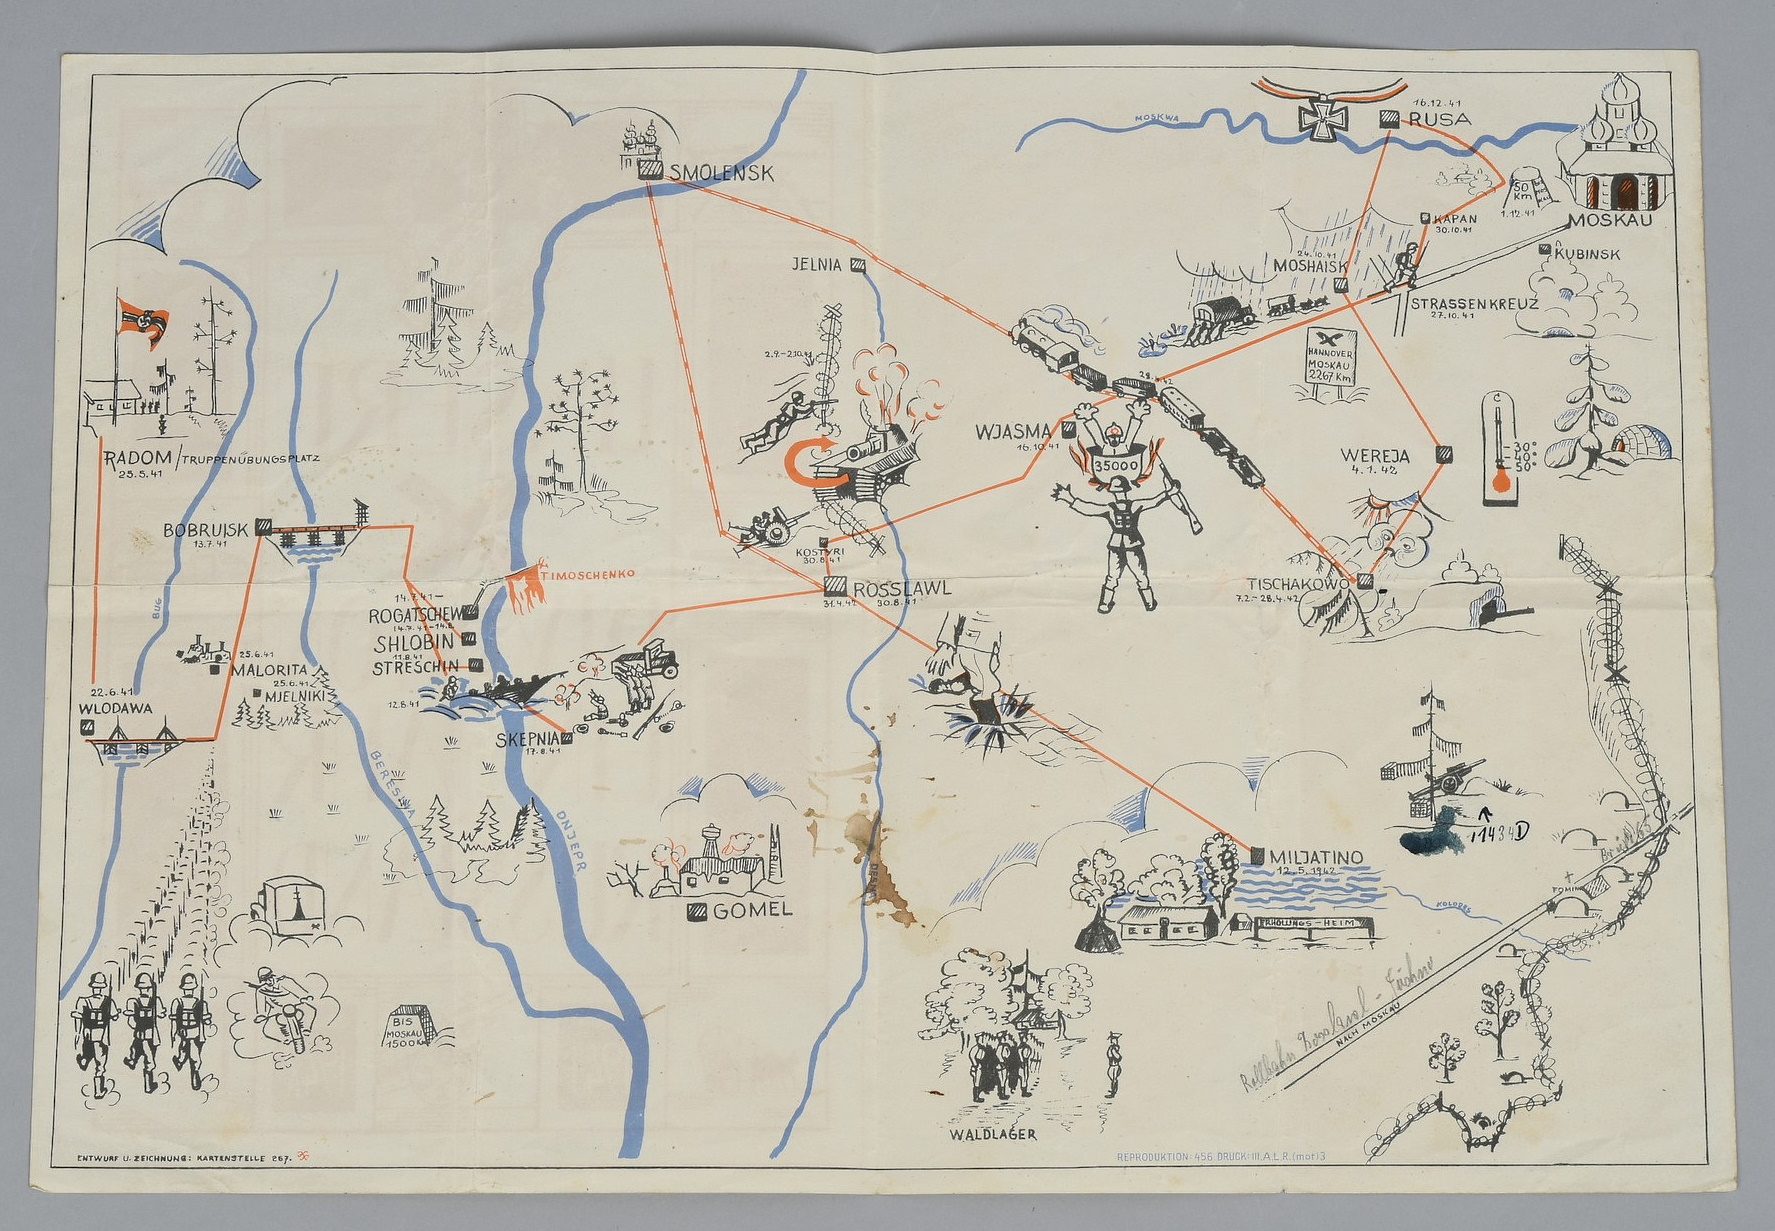 16.12.41
RUSA
MOSKWA
SMOLENSK
50
Km
1.12.41
MOSKAU
KAPAN
30.10.41
KUBINSK
24.10.41
MOSHAISK
JELNIA
STRASSENKREUZ
27.10.41
HANNOVER
MOSKAU
2267 Km
2.9.-2.10.41
C
30°
40°
50°
WJASMA
16.10.41
35000
WEREJA
4.1.42
RADOM/TRUPPENÜBUNGSPLATZ
25.5.41
BOBRUISK
13.7.41
KOSTYRI
30.8.41
TIMOSCHENKO
ROSSLAWL
31.4.42 30.8.41
TISCHAKOWO
7.2.-28.4.42
14.7.41-
ROGATSCHEW
14.7.41-14.8.
SHLOBIN
11.8.41
STRESCHIN
12.8.41
BUG
25.6.41
MALORITA
25.6.41
MJELNIKI
22.6.41
WLODAWA
SKEPNIA
17.8.41
BERESINA
DNJEPR
DESNA
GOMEL
11434D
MILJATINO
12.5.1942
KOLODES
ERHOLUNGS-HEIM
BIS
MOSKAU
1500 Km
Rollbahn Rosslawl - Juchnow
NACH MOSKAU
WALDLAGER
ENTWURF U. ZEICHNUNG: KARTENSTELLE 267.
REPRODUKTION: 456 DRUCK: III.A.L.R.(mot)3